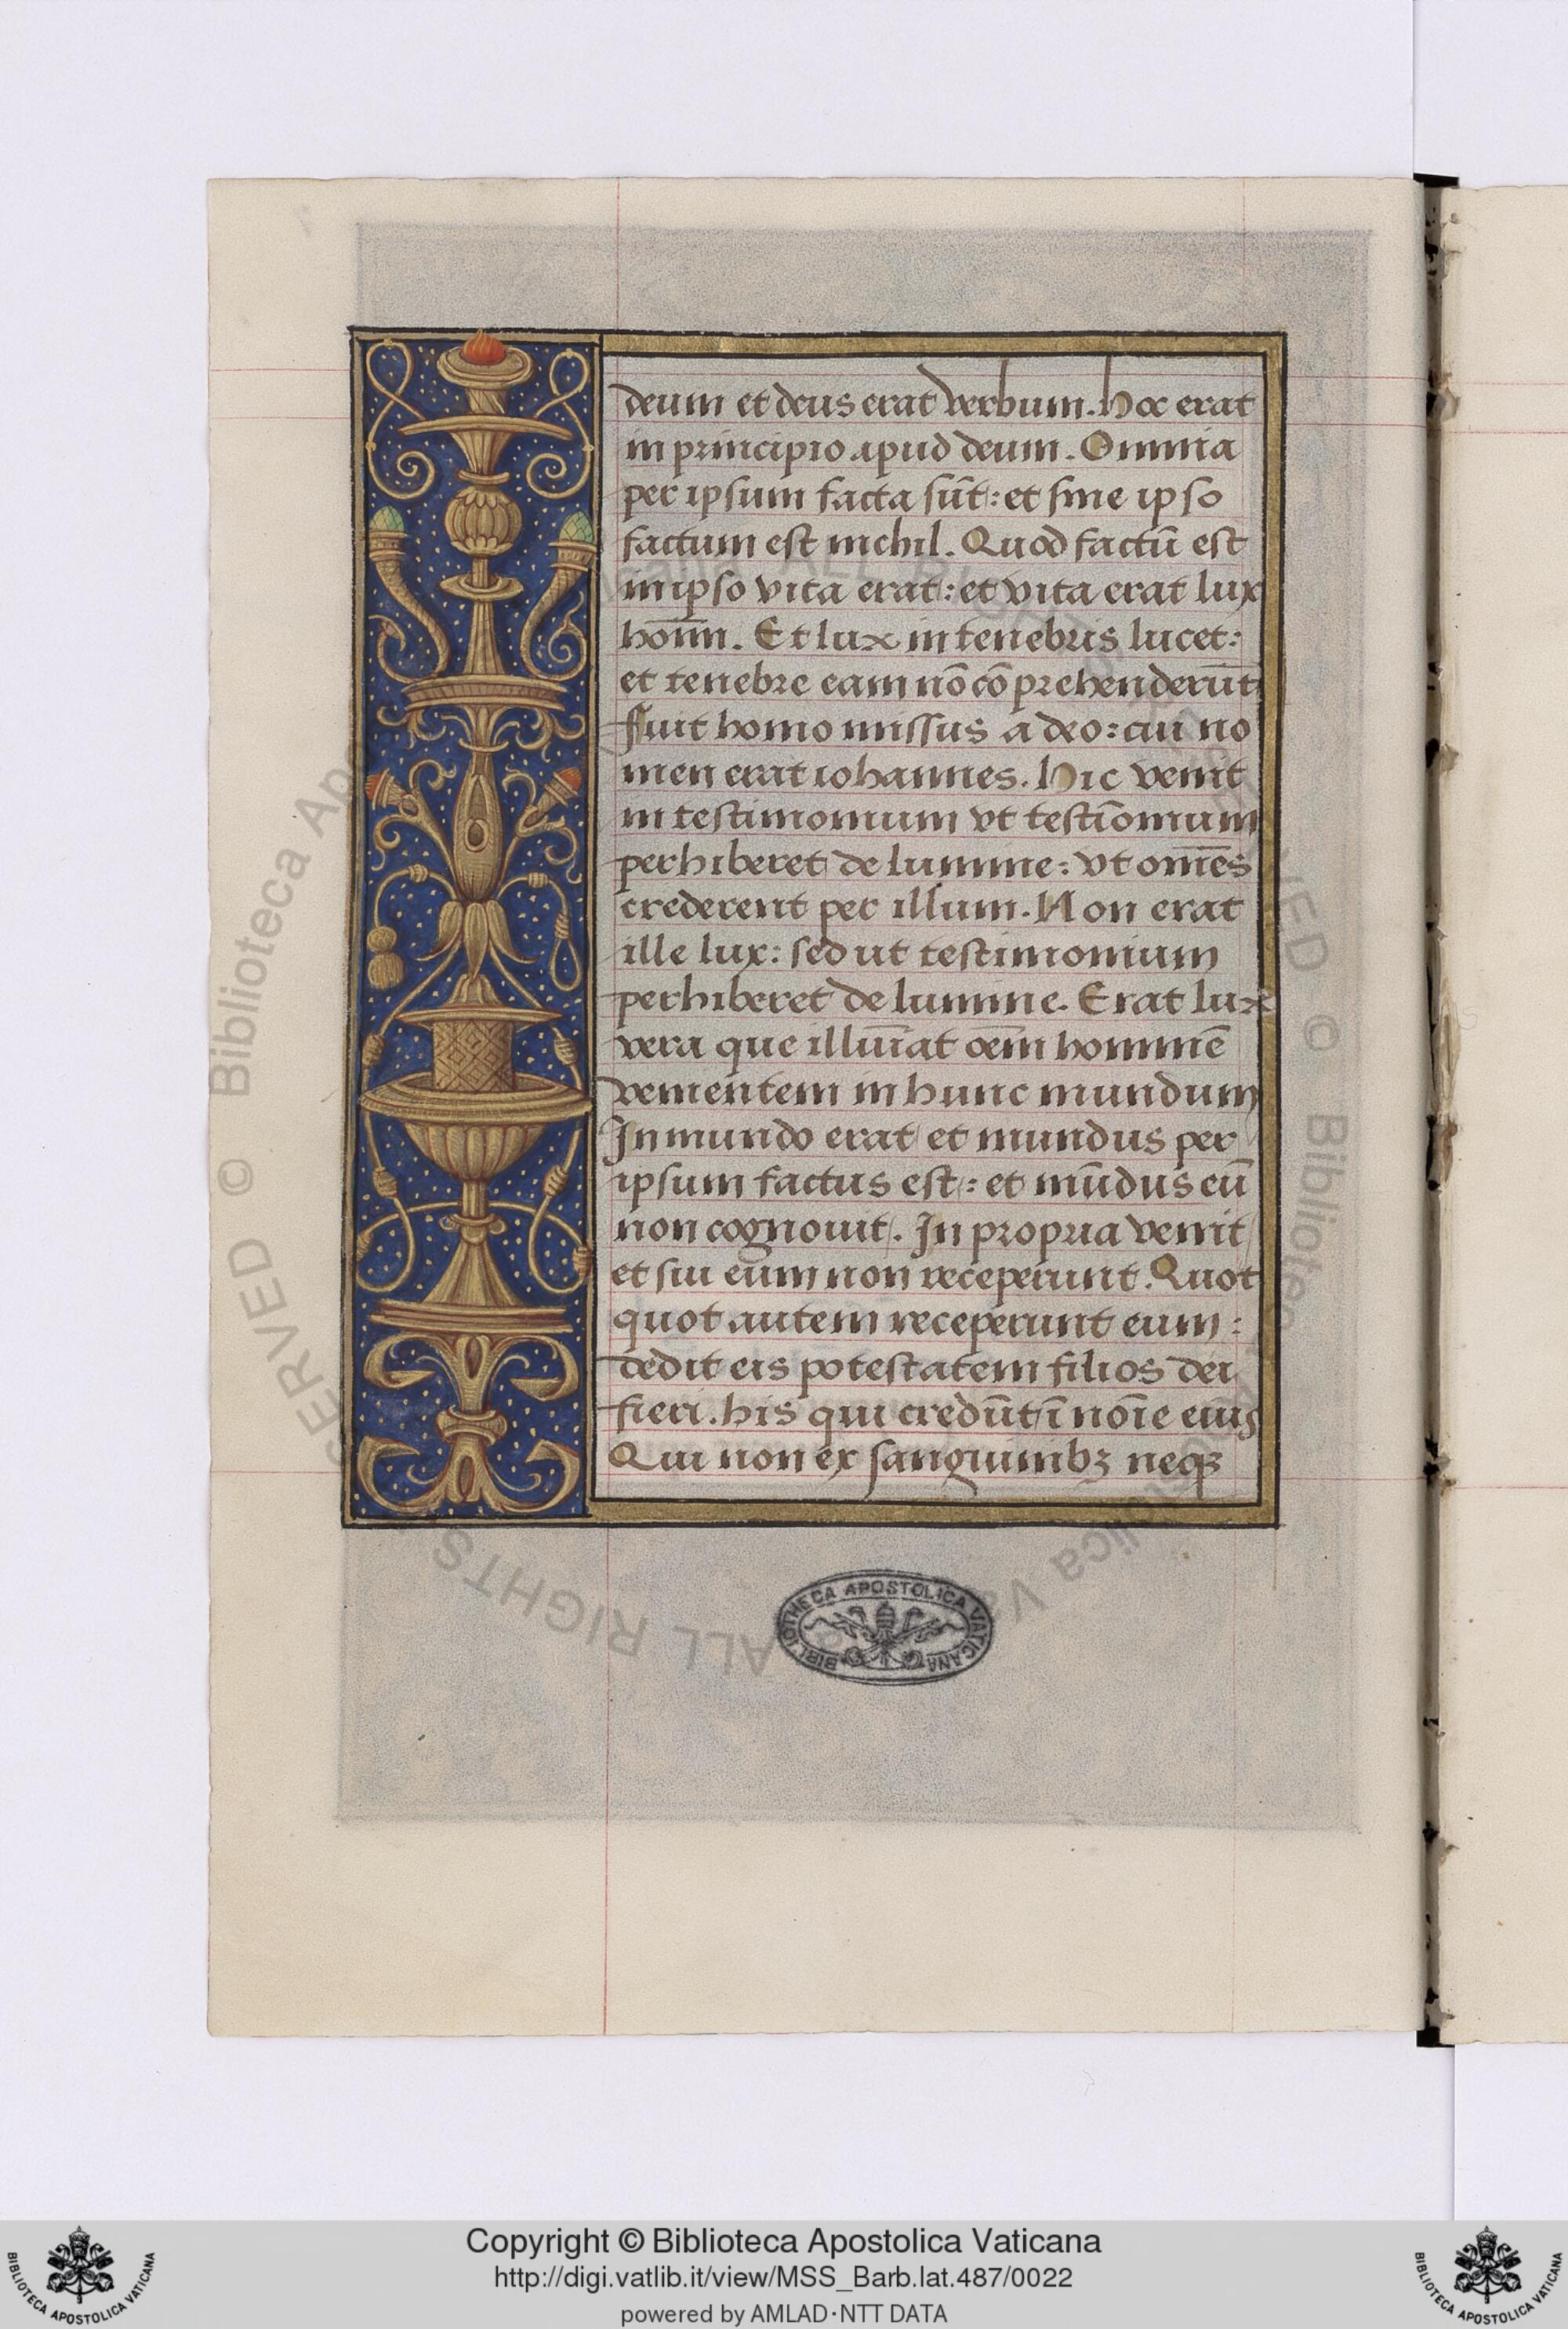 deum et deus erat verbum. Hoc erat
in principio apud deum. Omnia
per ipsum facta sūt: et sine ipso
factum est nichil. Quod factū est
in ipso vita erat: et vita erat lux
hoīm. Et lux in tenebris lucet:
et tenebre eam nō cōprehenderūt
Fuit homo missus a deo: cui no
men erat iohannes. Hic venit
in testimonium vt testīonium
perhiberet de lumine: vt om̄es
crederent per illum. Non erat
ille lux: sed ut testimonium
perhiberet de lumine. Erat lux
vera que illuīat oēm hominē
venientem in hunc mundum
In mundo erat et mundus per
ipsum factus est: et mūdus eū
non cognouit. In propria venit
et sui eum non receperunt. Quot
quot autem receperunt eum:
dedit eis potestatem filios dei
fieri. his qui credūt ī noīe eius
Qui non ex sanguinibꝫ neqꝫ
BIBLIOTHECA APOSTOLICA VATICANA
Copyright © Biblioteca Apostolica Vaticana
http://digi.vatlib.it/view/MSS_Barb.lat.487/0022
powered by AMLAD·NTT DATA
BIBLIOTECA APOSTOLICA VATICANA
BIBLIOTECA APOSTOLICA VATICANA